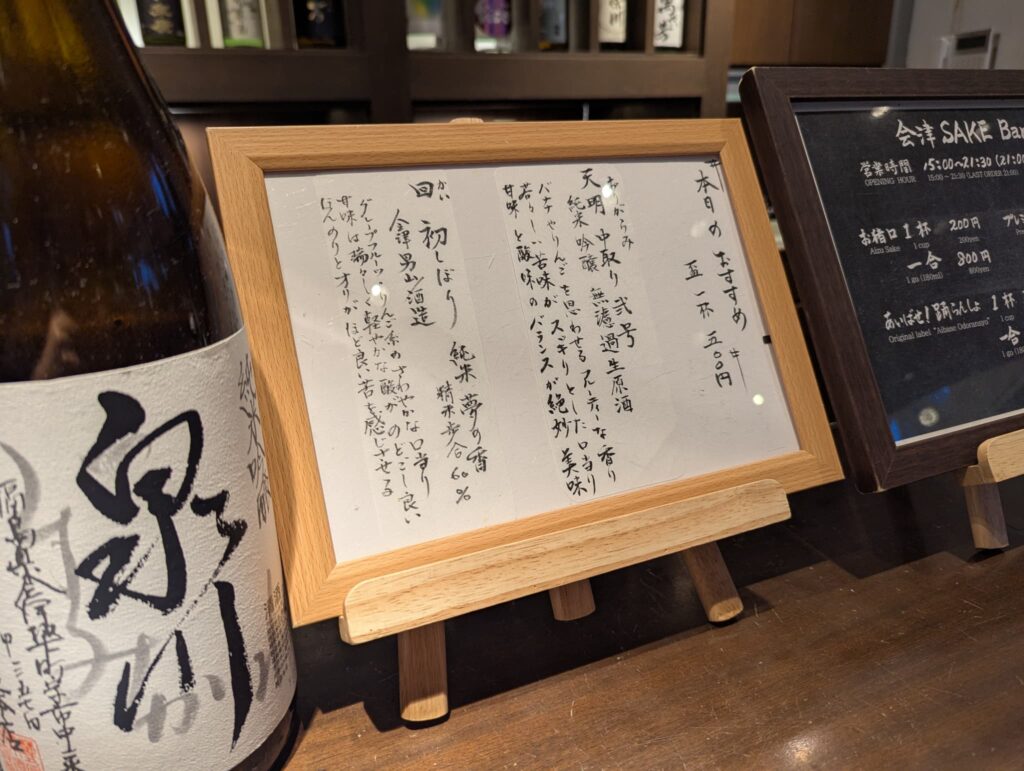 本日のおすすめ
盃 一杯 五〇〇円
おりがらみ
天明 中取り 弐号
純米吟醸 無濾過生原酒
バナナやりんごを思わせるフルーティーな香り
若々しい苦味がスッキリとした口当り
甘味と酸味のバランスが絶妙 美味
かい
回 初しぼり 純米 夢の香
会津男山酒造 精米歩合60%
グレープフルーツ りんご系のさわやかな口当り
甘味は瑞々しく軽やかな酸が のどごし良い
ほんのりとオリがほど良い苦を感じさせる
会津 SAKE Bar
営業時間 15:00~21:30 (21:00
OPENING HOUR 15:00 ~ 21:30 (LAST ORDER 21:00)
お猪口 1杯 200円
Aizu Sake 1 cup 200yen
一合 800円
1 go (180ml) 800yen
あいばせ!踊らんしょ 1杯
Original label "Aibase Odoransyo" 1 cup
一合
1 go (180
純米吟醸
泉川